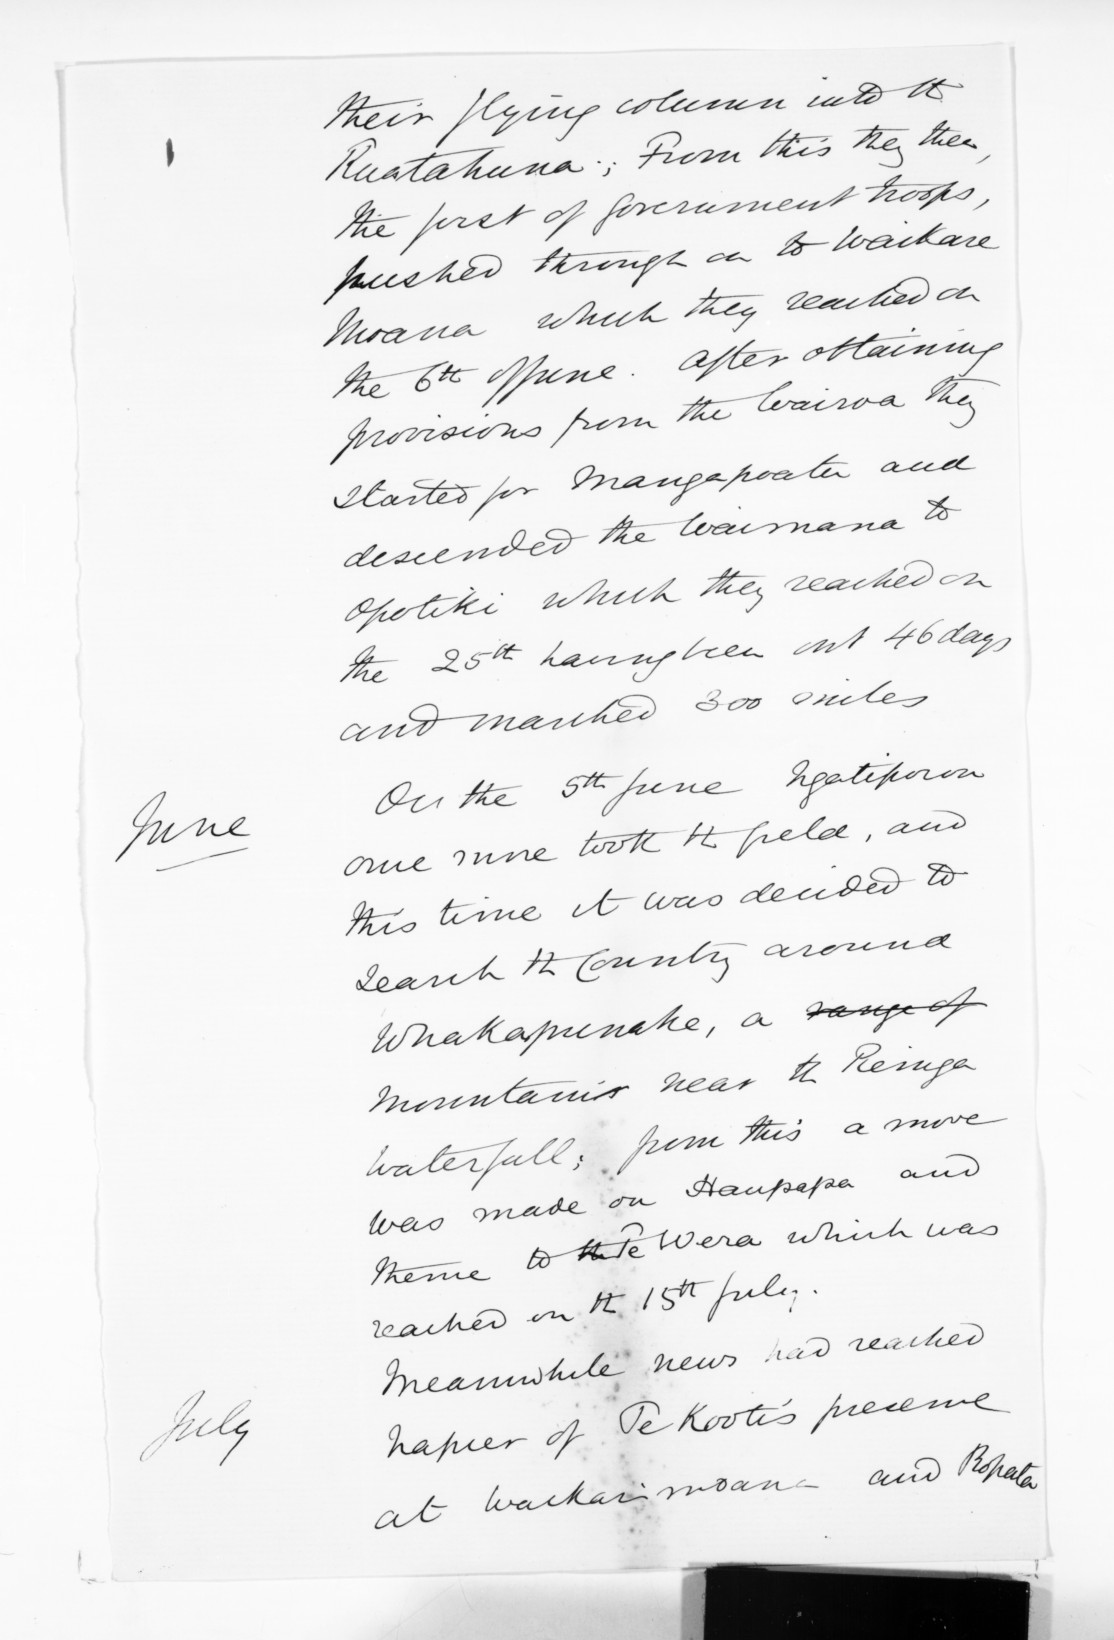 their flying column into th
Ruatahuna; From this they then,
the first of Government troops,
pushed through on to Waikare
Moana which they reached on
the 6th of June. after obtaining
provisions from the Wairoa they
started for Mangapoatu and
descended the Waimana to
Opotiki which they reached on
the 25th having been out 46 days
and marched 300 miles
June
On the 5th June Ngatiporou
once more took th field, and
this time it was decided to
search th Country around
Whakapunake, a range of
mountain near th Reinga
Waterfall; from this a move
was made on Haupapa and
thence to th Te Wera which was
reached on th 15th July.
Meanwhile news had reached
July
Napier of Te Kooti's presence
at Waikarimoana and Ropata